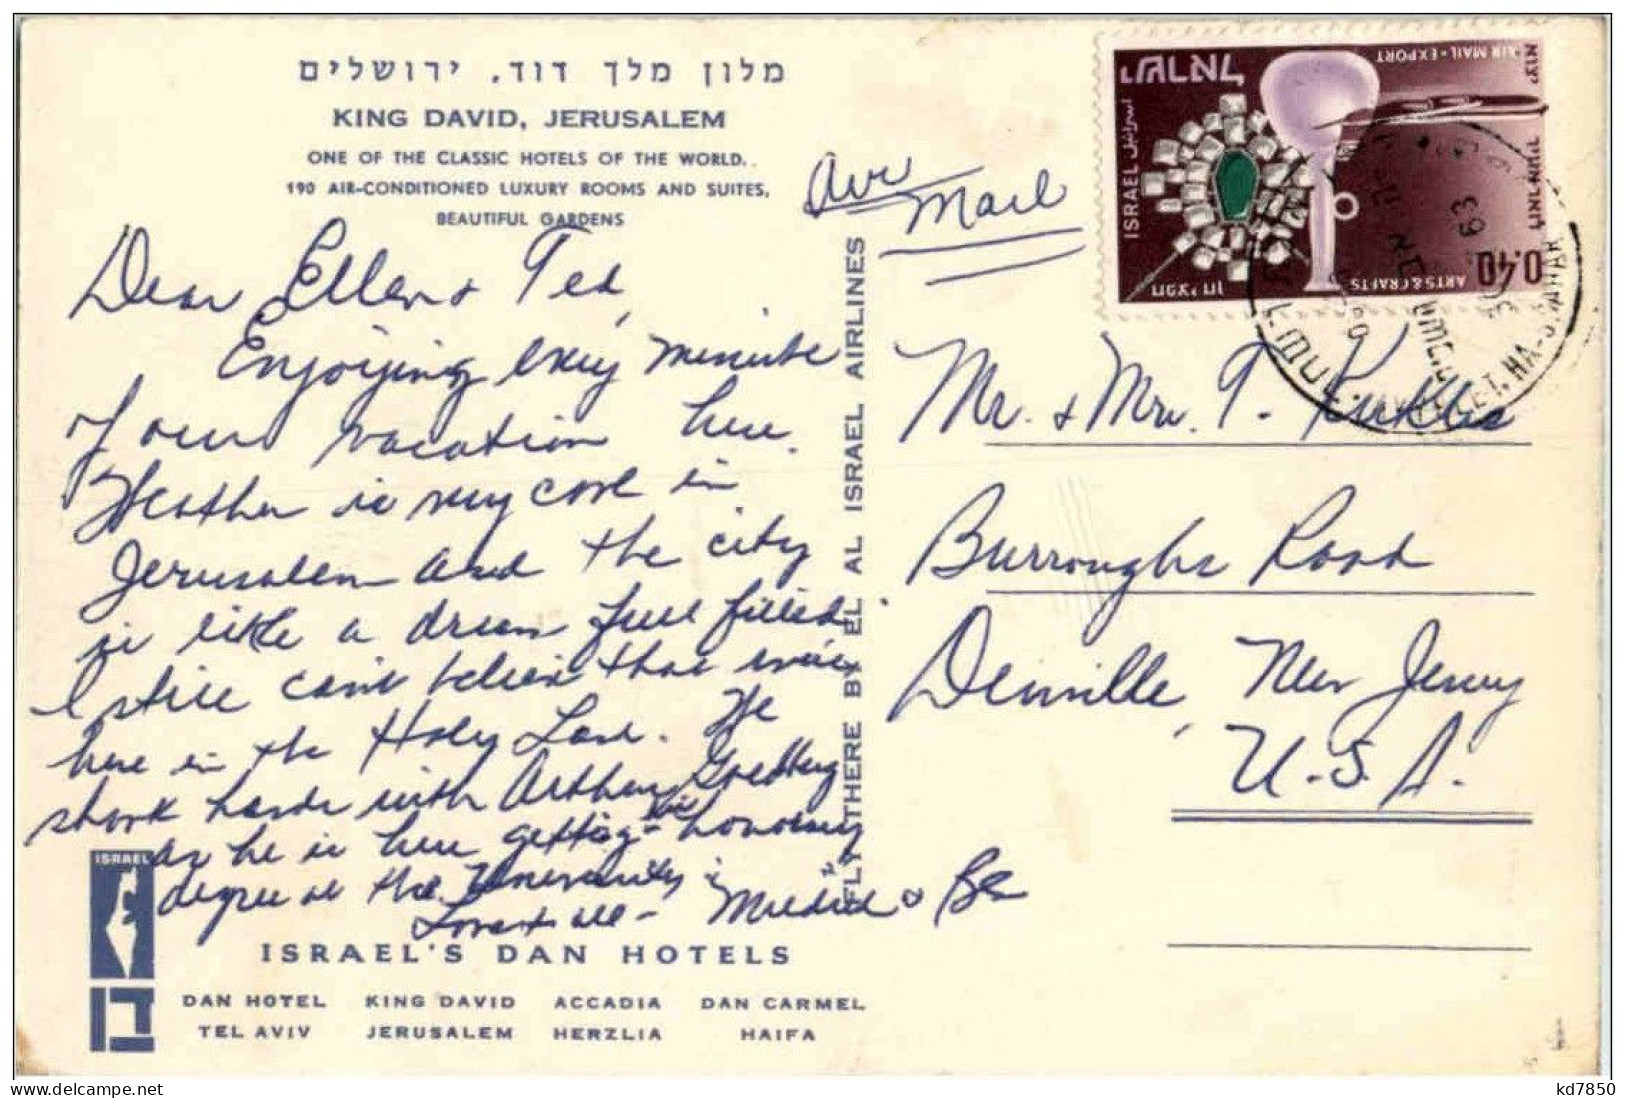 מלון מלך דוד, ירושלים
KING DAVID, JERUSALEM
ONE OF THE CLASSIC HOTELS OF THE WORLD.
190 AIR-CONDITIONED LUXURY ROOMS AND SUITES,
BEAUTIFUL GARDENS
Dear Ellen & Ted,
Enjoying every minute
of our vacation here.
Weather is very cool in
Jerusalem and the city
is like a dream full filled.
I still can't believe that we're
here in the Holy Land. We
shook hands with Arthur Goldberg
as he is here getting his honorary
degree at the University.
Love to all - Mildred & Be
ISRAEL
דן
ISRAEL'S DAN HOTELS
DAN HOTEL KING DAVID ACCADIA DAN CARMEL
TEL AVIV JERUSALEM HERZLIA HAIFA
FLY THERE BY EL AL ISRAEL AIRLINES
Air Mail
ישראל
اسرائيل ISRAEL
AIR MAIL • EXPORT
ARTS & CRAFTS
0.40
Mr. & Mrs. T.
Burroughs Road
Denville, New Jersey
U.S.A.
kd7850